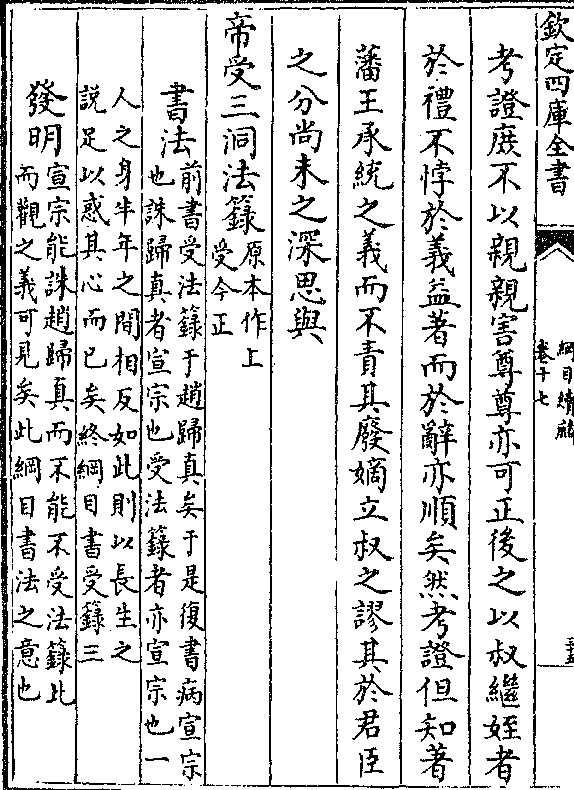 欽定四庫全書
綱目續麟
卷十七
考證庶不以親親害尊尊亦可正後之以叔繼姪者
於禮不悖於義益著而於辭亦順矣然考證但知著
藩王承統之義而不責其廢嫡立叔之謬其於君臣
之分尚未之深思與
帝受三洞法籙原本作上
受今正
書法前書受法籙于趙歸真矣于是復書病宣宗
也誅歸真者宣宗也受法籙者亦宣宗也一
人之身半年之間相反如此則以長生之
説足以惑其心而已矣終綱目書受籙三
發明宣宗能誅趙歸真而不能不受法籙比
而觀之義可見矣此綱目書法之意也